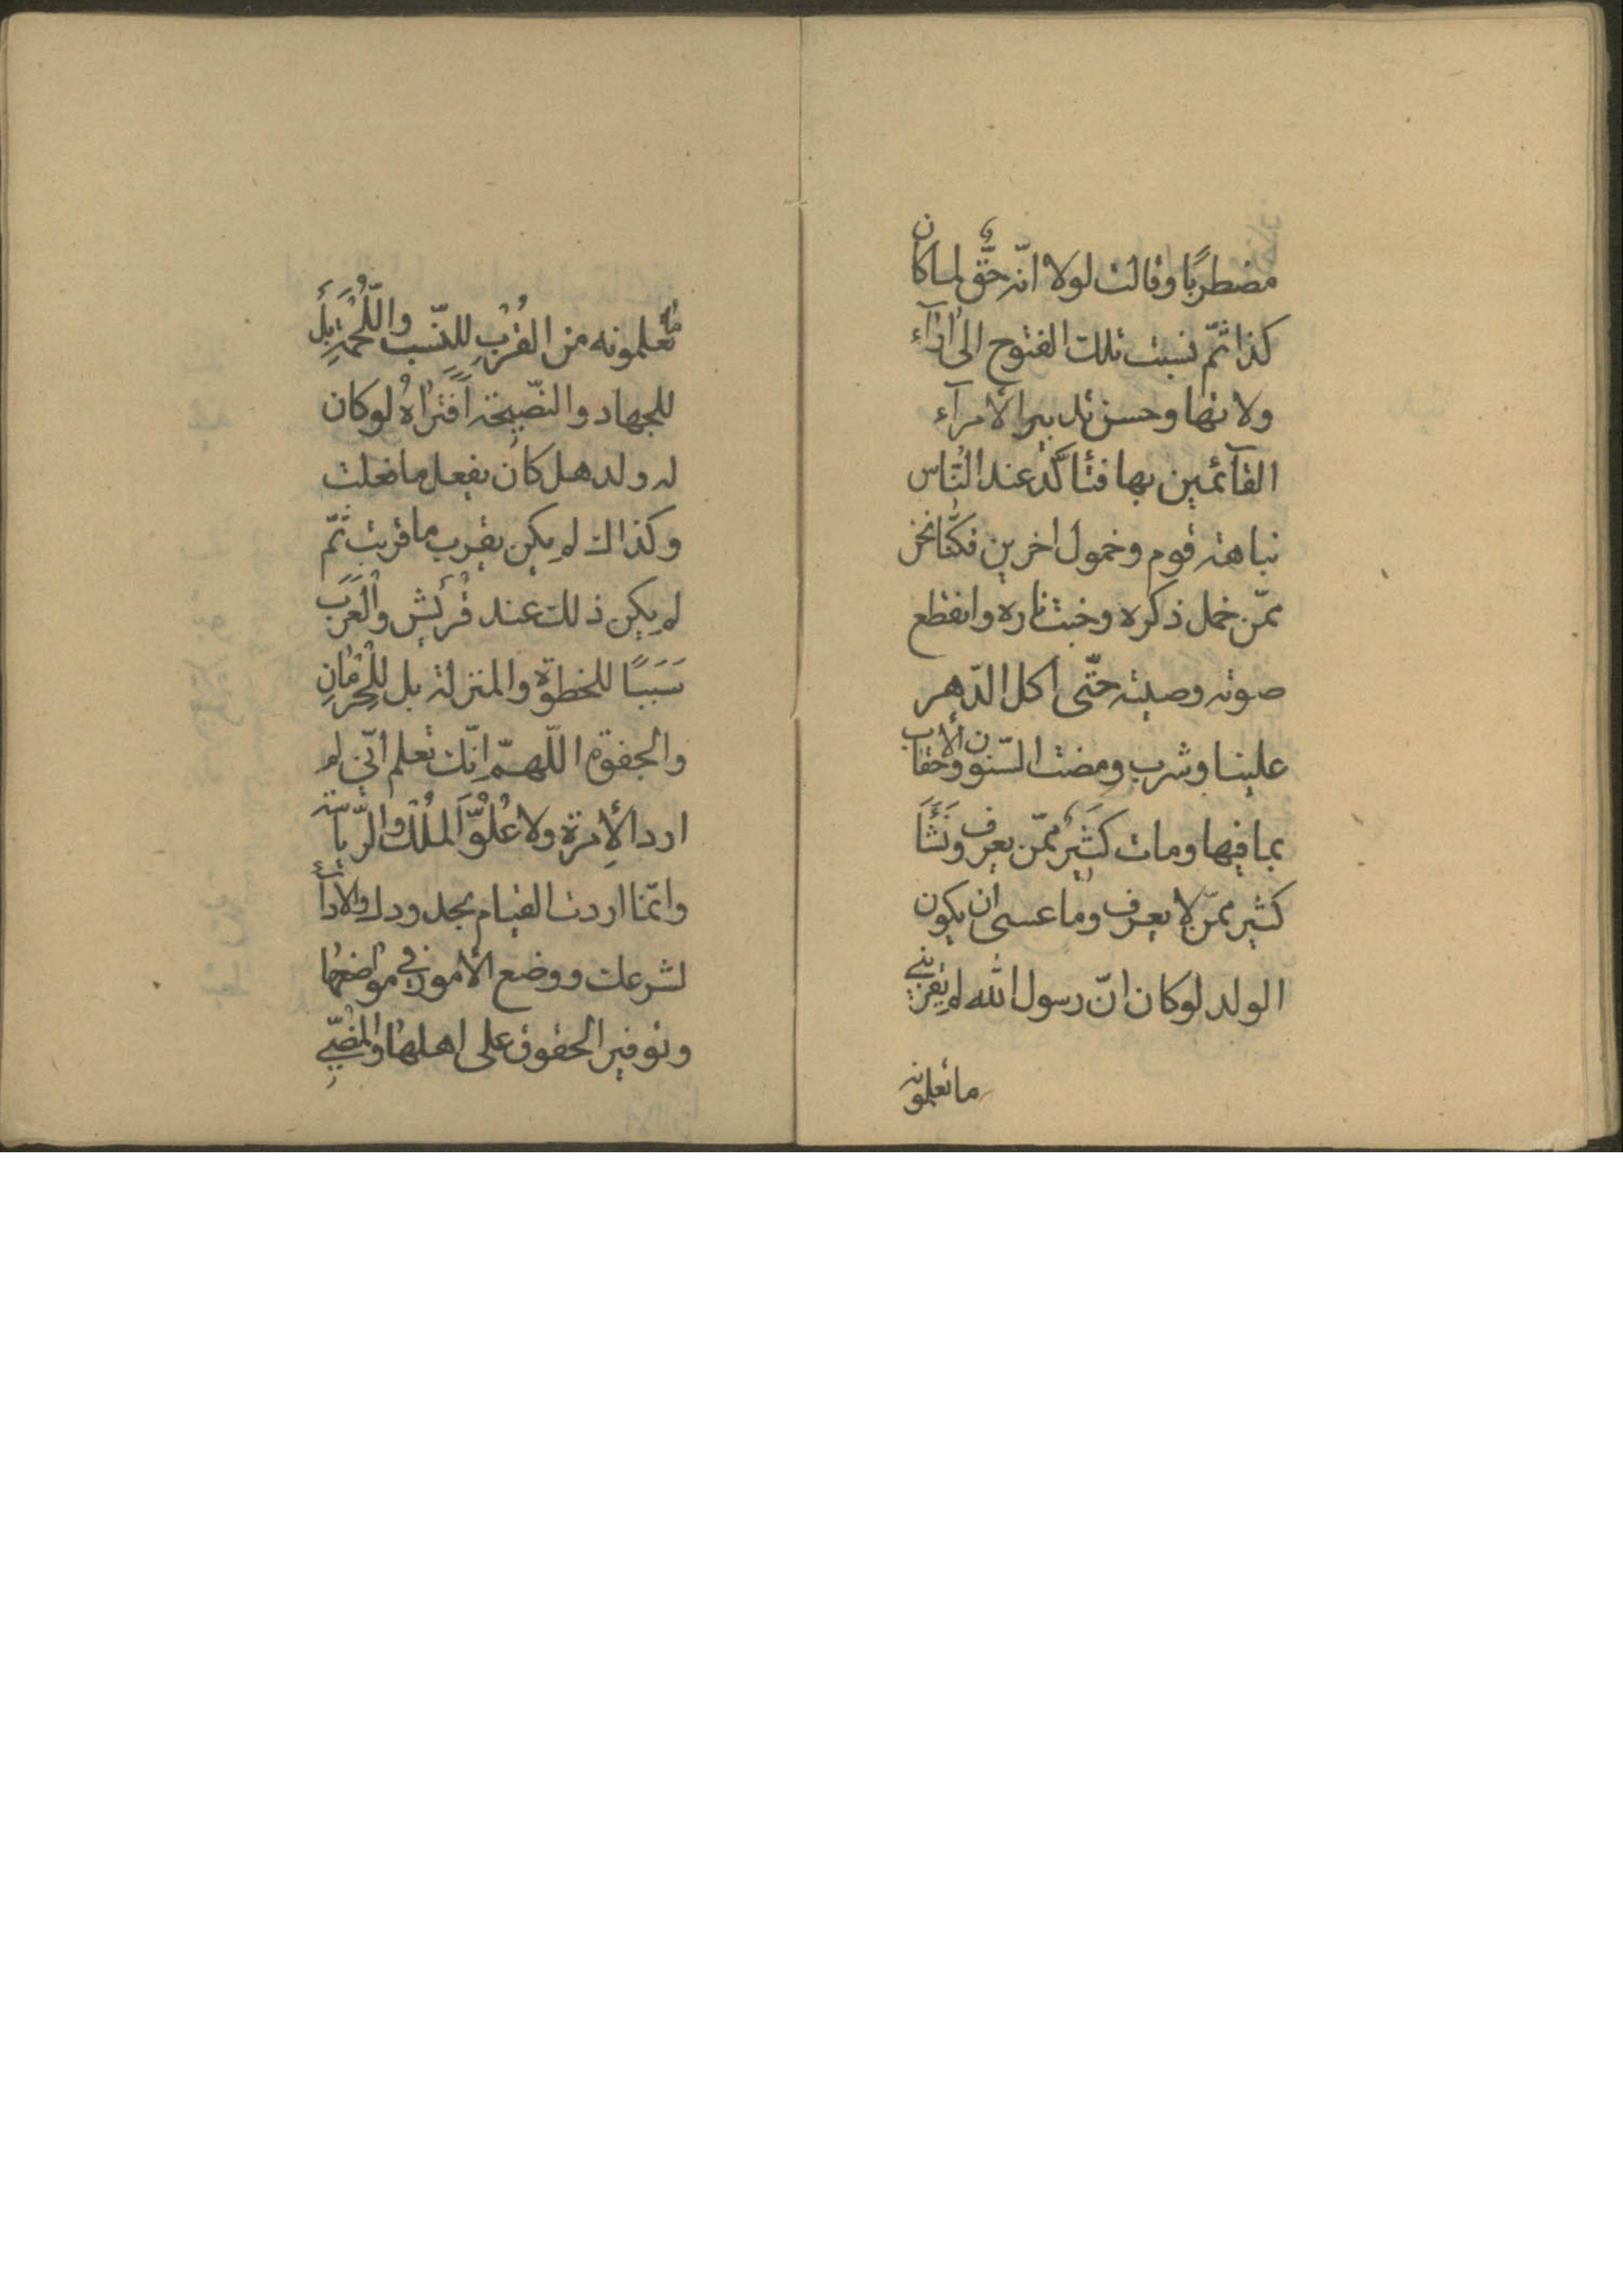 مضطربًا وقالت لولا انّه حقّ لما كان
كذا ثمّ نسبت تلك الفتوح الى اراۤء
ولاتها وحسن تدبير الأمرآء
القآئمين بها فتأكّد عند النّاس
نباهة قوم وخمول اخرين فكنّا نحن
ممّن خمل ذكره وخبت ناره وانقطع
صوته وصيته حتّى اكل الدّهر
علينا وشرب ومضت السّنون والأحقاب
بما فيها ومات كَثِيرٌ ممّن يعرف ونَشَأَ
كثير ممّن لا يعرف وما عسى ان يكون
الولد لو كان انّ رسول الله لم يقرّبني
ما تعلمونه
ما تعلمونه من القُرْبِ للنّسب واللُّحْمَةِ بَل
للجهاد والنّصيحة أفتراهُ لو كان
له ولد هل كان يفعل ما فعلت
وكذاك لم يكن يقرب ما قربت ثمّ
لم يكن ذلك عند قُرَيْش والْعَرَب
سَبَبًا للحظوة والمنزلة بل لِلْحِرْمَانِ
والجفوة اللّهمّ إنّك تعلم أنّي لم
ارد الأِمرة ولا عُلُوَّ المُلْك والرّياسة
وانّما اردت القيام بحدودك والادآء
لشرعك ووضع الأمور في مواضعها
وتوفير الحقوق على اهلها والمُضِيّ